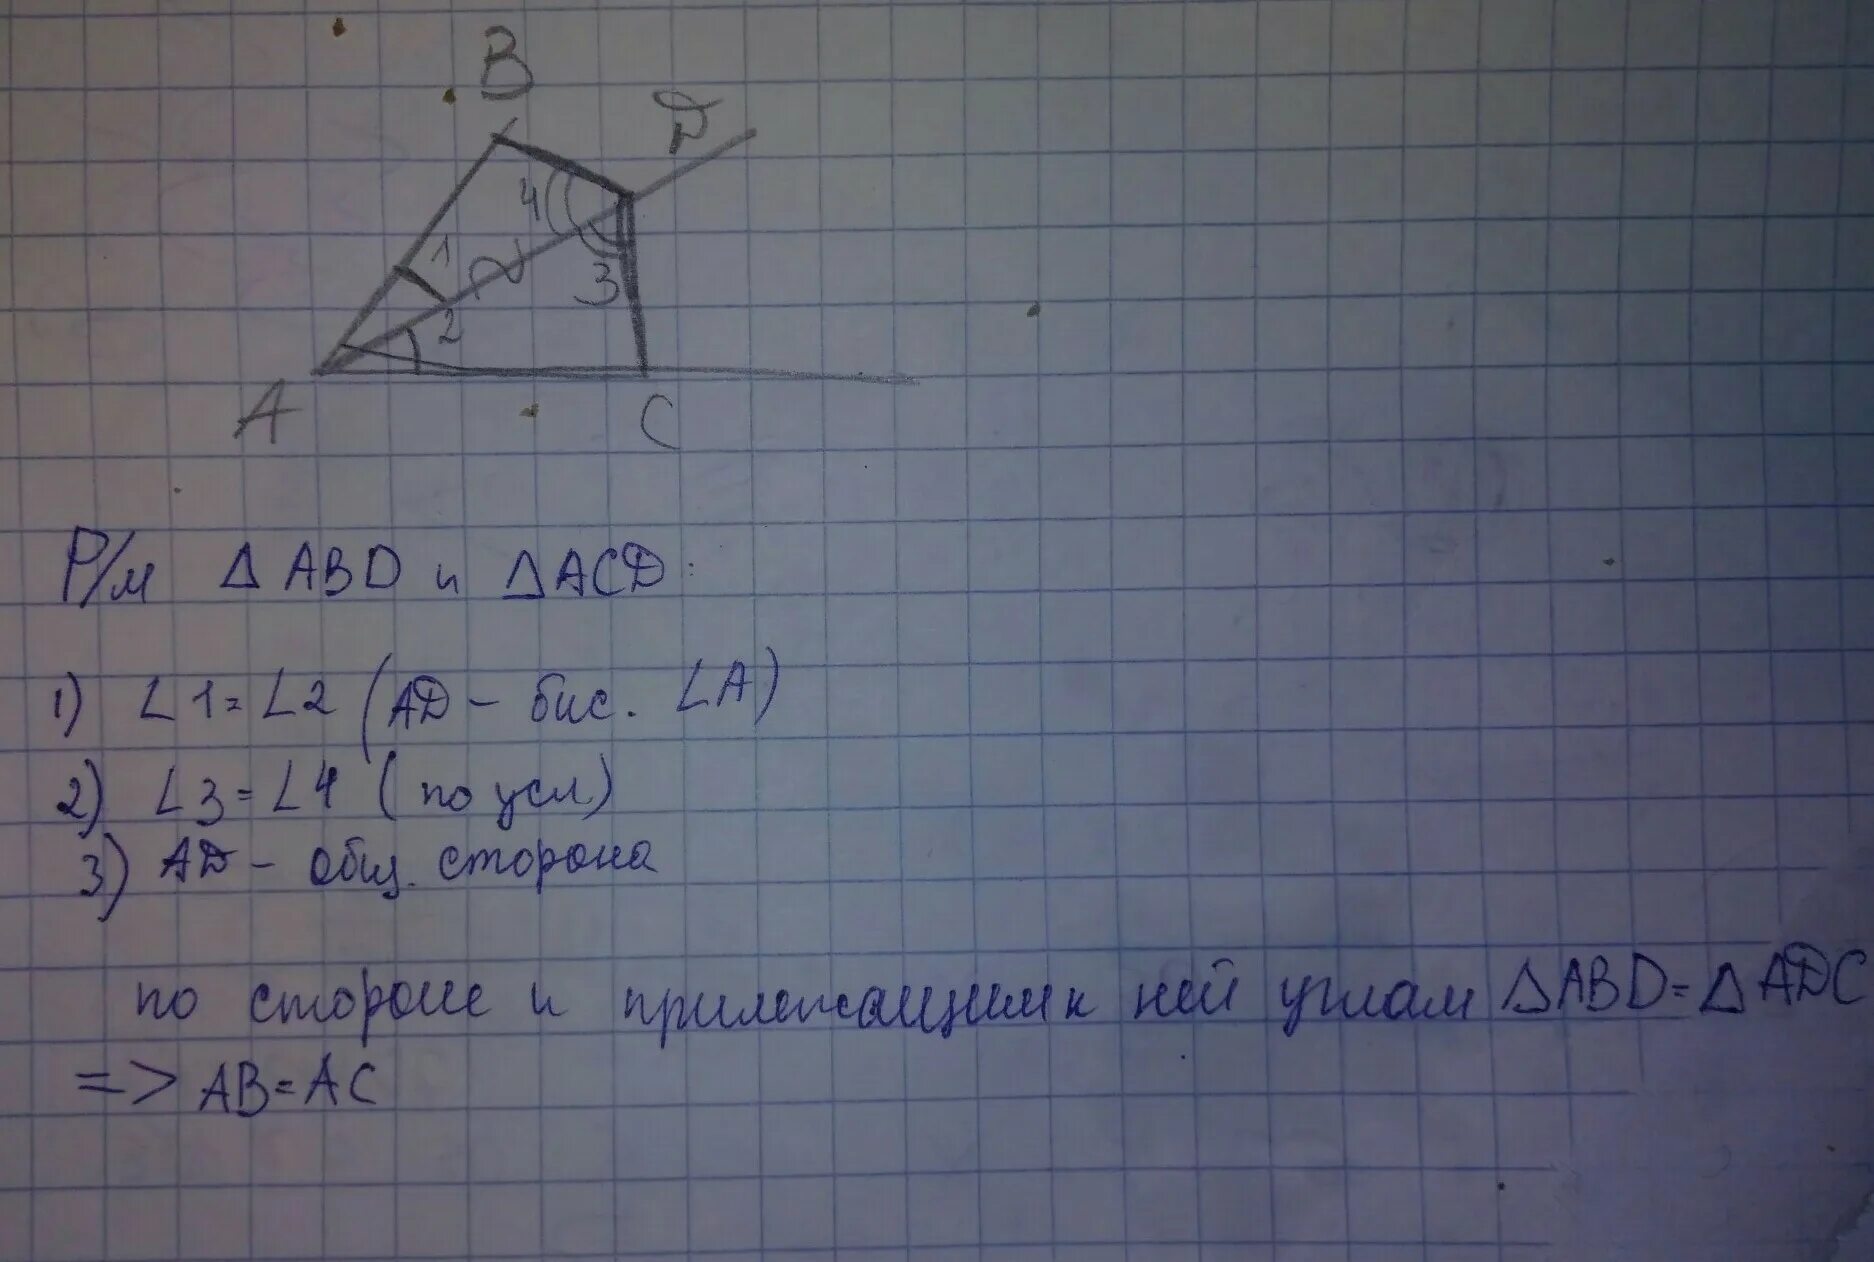 B
D
4
1
3
2
A
C
Р/м △ ABD и △ACD:
1) ∠1=∠2 (AD – бис. ∠A)
2) ∠3=∠4 (по усл)
3) AD – общ. сторона
по стороне и прилежащим к ней углам △ABD=△ADC
=> AB=AC